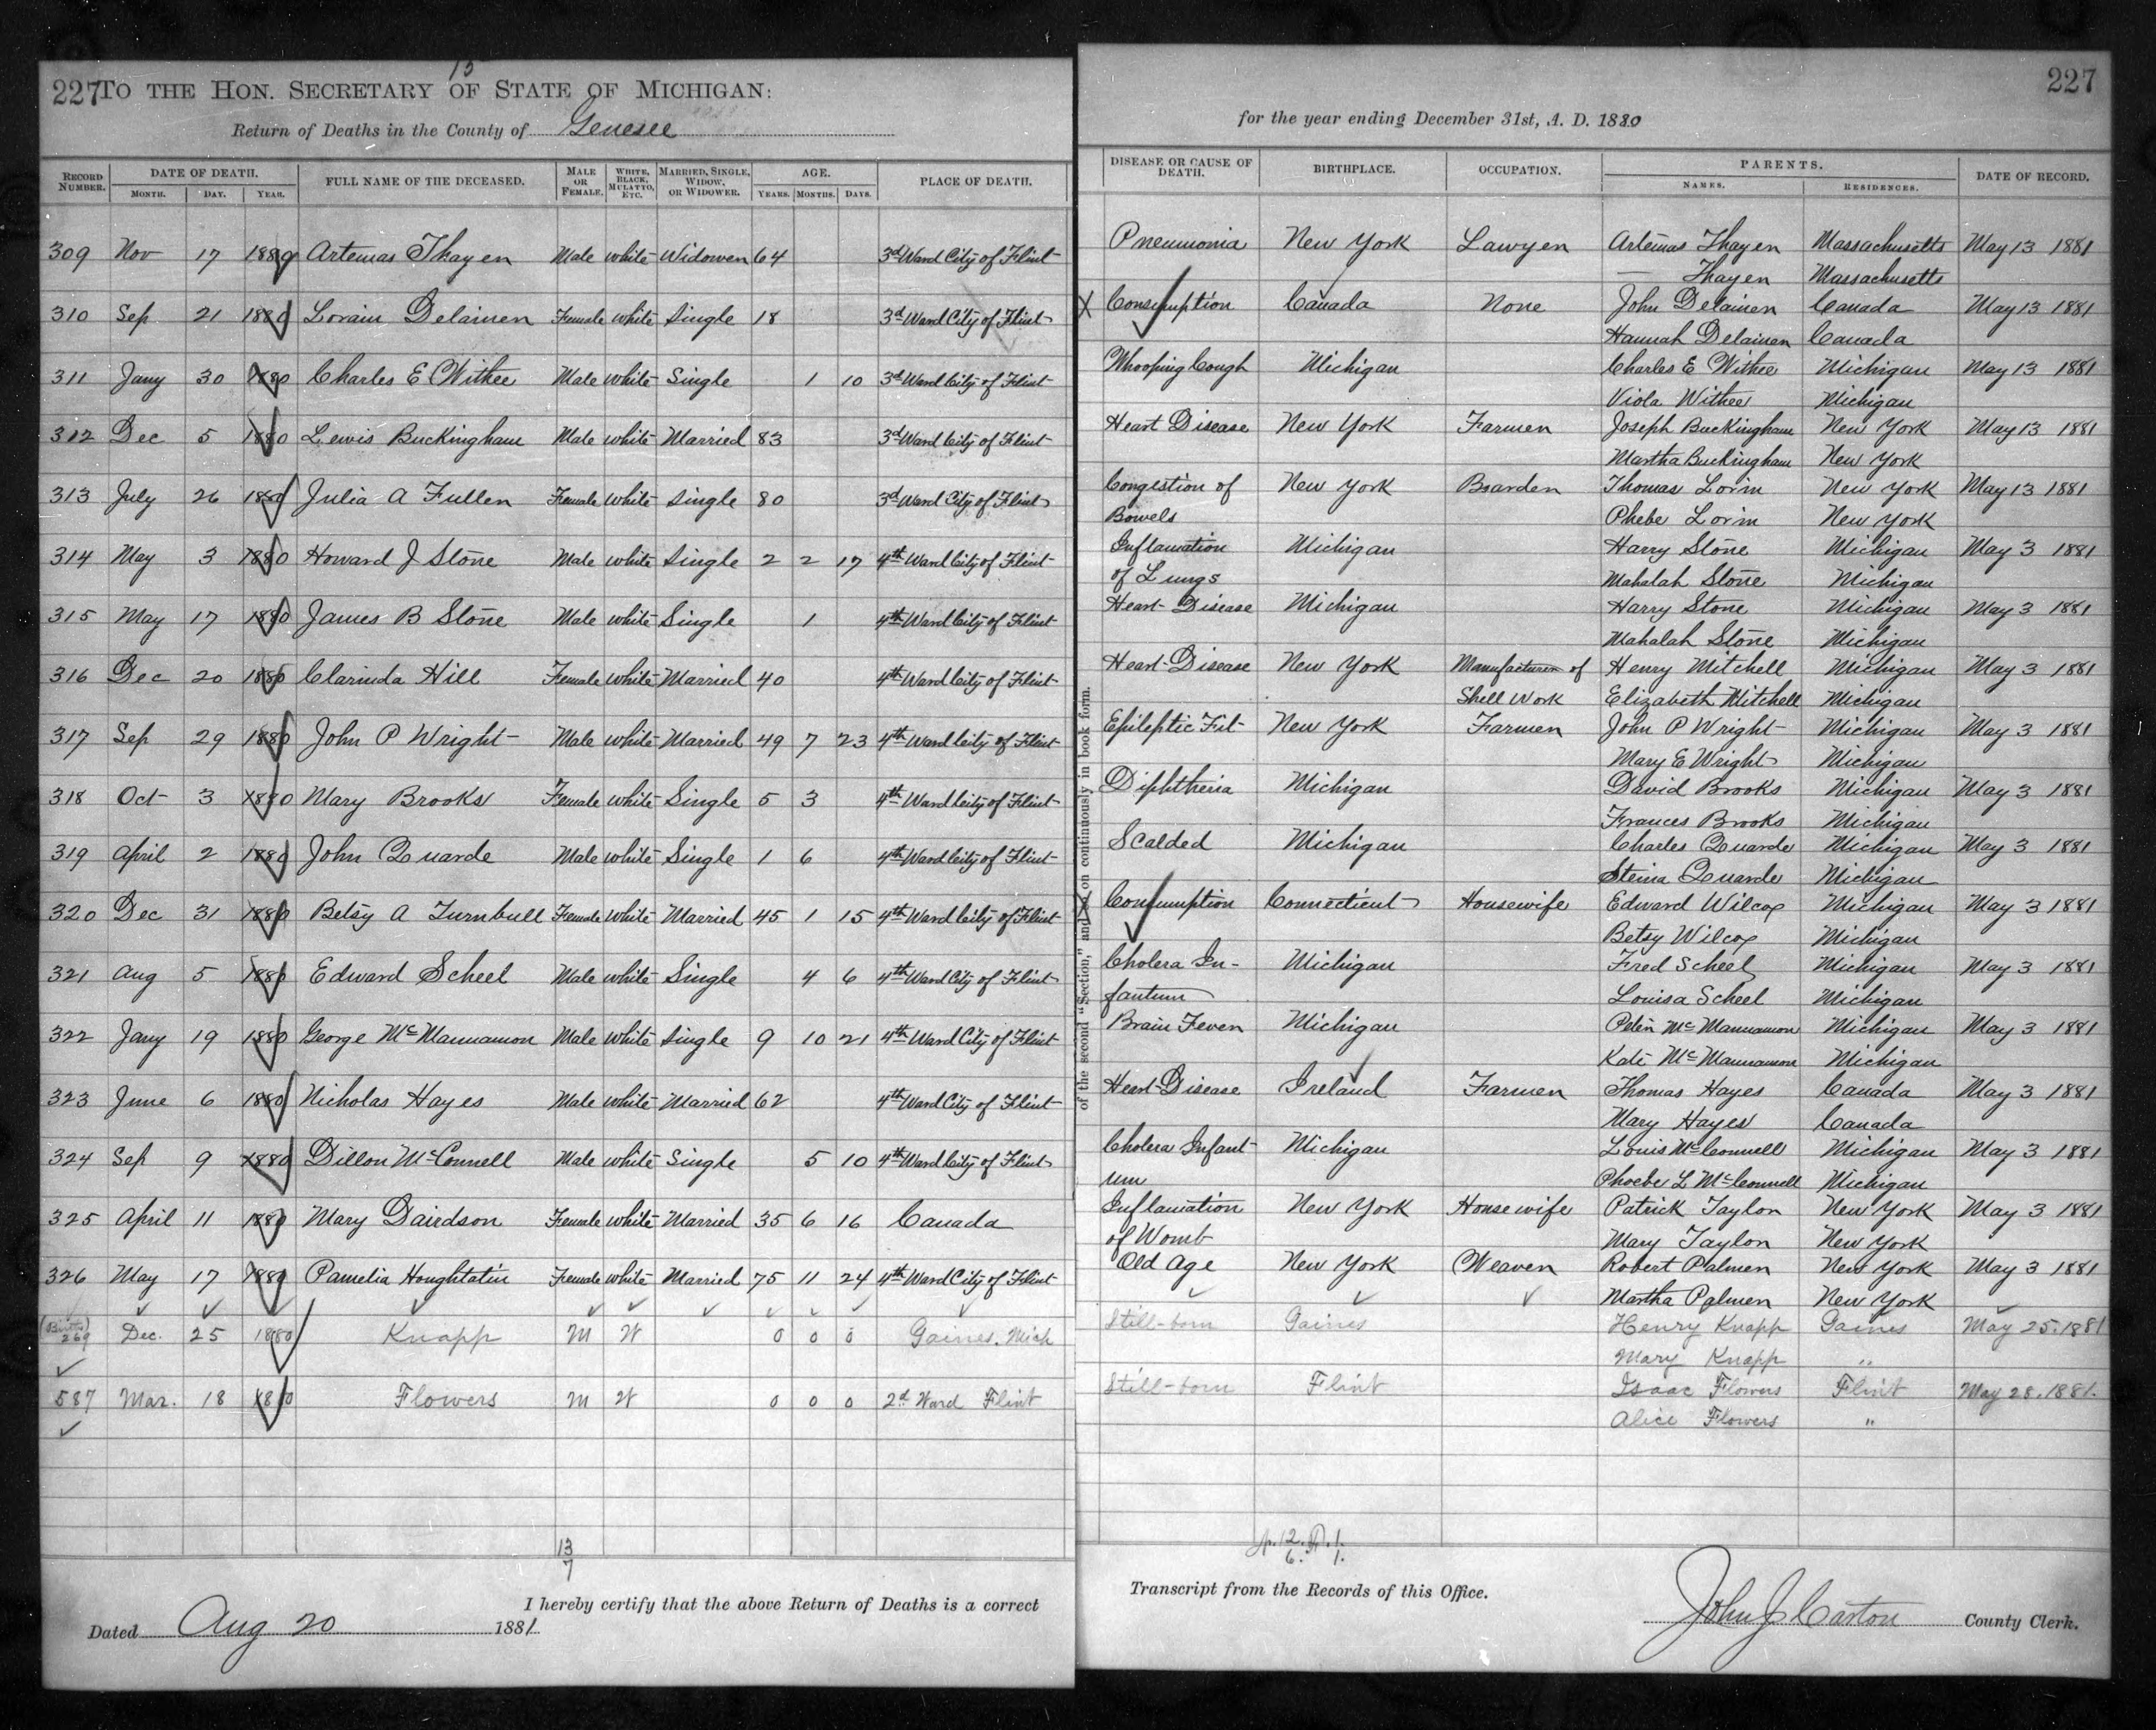 15
227 TO THE HON. SECRETARY OF STATE OF MICHIGAN: 227
Return of Deaths in the County of Genesee for the year ending December 31st, A. D. 1880
RECORD NUMBER. DATE OF DEATH. MONTH. DAY. YEAR. FULL NAME OF THE DECEASED. MALE OR FEMALE. WHITE, BLACK, MULATTO, ETC. MARRIED, SINGLE, WIDOW, OR WIDOWER. AGE. YEARS. MONTHS. DAYS. PLACE OF DEATH. DISEASE OR CAUSE OF DEATH. BIRTHPLACE. OCCUPATION. PARENTS. NAMES. RESIDENCES. DATE OF RECORD.
309 Nov 17 1880 Artemas Thayer Male white Widower 64 3d Ward City of Flint Pneumonia New York Lawyer Artemas Thayer Massachusetts May 13 1881
— Thayer Massachusetts
310 Sep 21 1880 Lorain Delainer Female white Single 18 3d Ward City of Flint X Consumption Canada None John Delainer Canada May 13 1881
Hannah Delainer Canada
311 Jany 30 1880 Charles E Withee Male white Single 1 10 3d Ward City of Flint Whooping Cough Michigan Charles E Withee Michigan May 13 1881
Viola Withee Michigan
312 Dec 5 1880 Lewis Buckingham Male white Married 83 3d Ward City of Flint Heart Disease New York Farmer Joseph Buckingham New York May 13 1881
Martha Buckingham New York
313 July 26 1880 Julia A Fuller Female white Single 80 3d Ward City of Flint Congestion of New York Boarder Thomas Lorin New York May 13 1881
Bowels Phebe Lorin New York
314 May 3 1880 Howard J Stone Male white Single 2 2 17 4th Ward City of Flint Inflamation Michigan Harry Stone Michigan May 3 1881
of Lungs Mahalah Stone Michigan
315 May 17 1880 James B Stone Male white Single 1 4th Ward City of Flint Heart Disease Michigan Harry Stone Michigan May 3 1881
Mahalah Stone Michigan
316 Dec 20 1880 Clarinda Hill Female white Married 40 4th Ward City of Flint Heart Disease New York Manufacturer of Henry Mitchell Michigan May 3 1881
Shell Work Elizabeth Mitchell Michigan
317 Sep 29 1880 John P Wright Male white Married 49 7 23 4th Ward City of Flint Epileptic Fit New York Farmer John P Wright Michigan May 3 1881
Mary E Wright Michigan
318 Oct 3 1880 Mary Brooks Female white Single 5 3 4th Ward City of Flint Diphtheria Michigan David Brooks Michigan May 3 1881
Frances Brooks Michigan
319 April 2 1880 John Quarde Male white Single 1 6 4th Ward City of Flint Scalded Michigan Charles Quarde Michigan May 3 1881
Steina Quarde Michigan
320 Dec 31 1880 Betsy A Turnbull Female white Married 45 1 15 4th Ward City of Flint X Consumption Connecticut Housewife Edward Wilcox Michigan May 3 1881
Betsy Wilcox Michigan
321 Aug 5 1880 Edward Scheel Male white Single 4 6 4th Ward City of Flint Cholera In- Michigan Fred Scheel Michigan May 3 1881
fantum Louisa Scheel Michigan
322 Jany 19 1880 George McMannamon Male white Single 9 10 21 4th Ward City of Flint Brain Fever Michigan Peter McMannamon Michigan May 3 1881
Kate McMannamon Michigan
323 June 6 1880 Nicholas Hayes Male white Married 62 4th Ward City of Flint Heart Disease Ireland Farmer Thomas Hayes Canada May 3 1881
Mary Hayes Canada
324 Sep 9 1880 Dillon McConnell Male white Single 5 10 4th Ward City of Flint Cholera Infant- Michigan Louis McConnell Michigan May 3 1881
um Phoebe L McConnell Michigan
325 April 11 1880 Mary Dairdson Female white Married 35 6 16 Canada Inflamation New York Housewife Patrick Taylor New York May 3 1881
of Womb Mary Taylor New York
326 May 17 1880 Pamelia Houghtatin Female white Married 75 11 24 4th Ward City of Flint Old Age New York Weaver Robert Palmer New York May 3 1881
Martha Palmer New York
(Births) 269 Dec. 25 1880 Knapp M W 0 0 0 Gaines, Mich Still-born Gaines Henry Knapp Gaines May 25. 1881
Mary Knapp "
587 Mar. 18 1880 Flowers M W 0 0 0 2d Ward Flint Still-born Flint Isaac Flowers Flint May 28. 1881.
Alice Flowers "
of the second "Section," and so on continuously in book form.
13
7
I hereby certify that the above Return of Deaths is a correct Transcript from the Records of this Office.
Dated Aug 20 1881. John J Carton County Clerk.